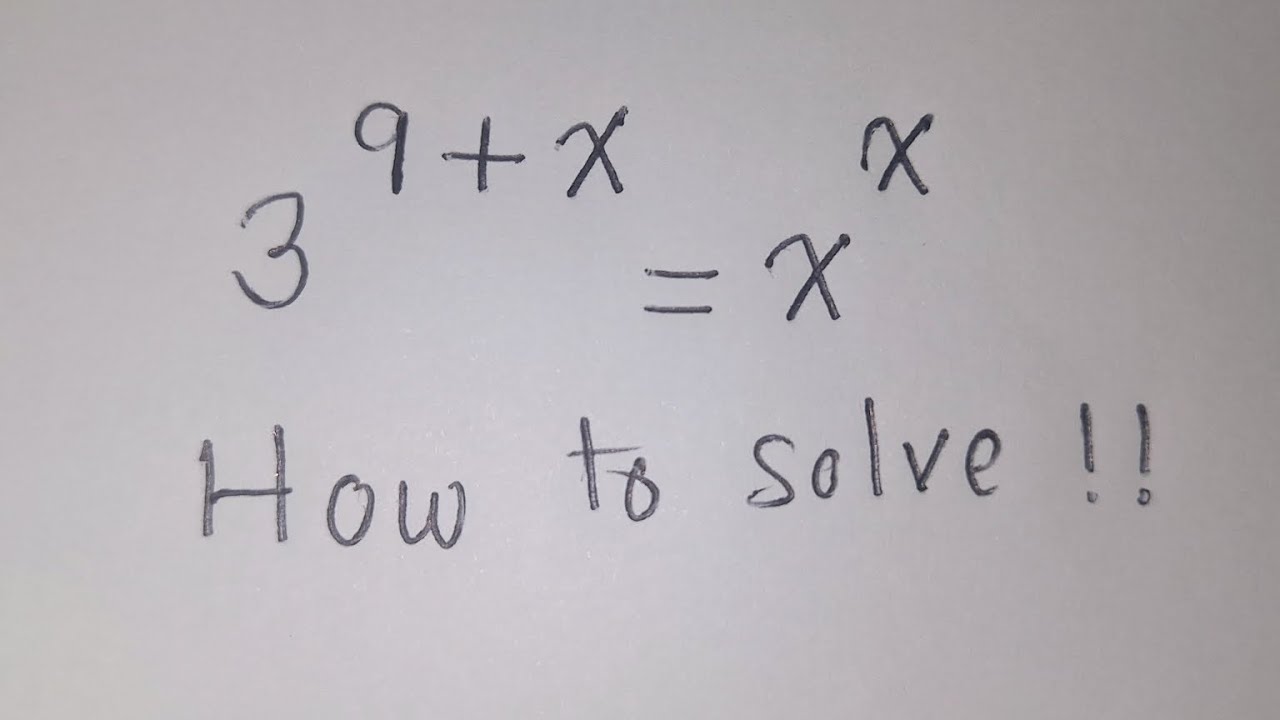 3^{9+x} = x^x
How to solve !!